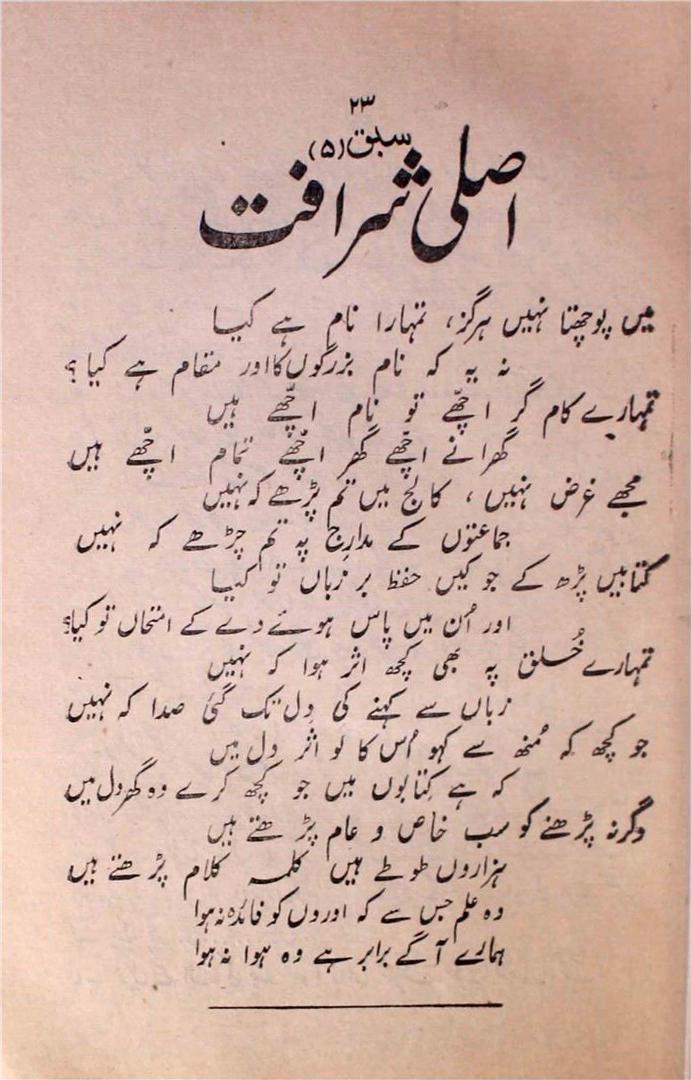 ۲۳
سبق (۵)
اصلی شرافت
میں پوچھتا نہیں ہرگز، تمہارا نام ہے کیا
نہ یہ کہ نام بزرگوں کا اور مقام ہے کیا؟
تمہارے کام گر اچھّے تو نام اچھّے ہیں
گھرانے اچھّے گھر اچھّے تمام اچھّے ہیں
مجھے غرض نہیں، کالج میں تم پڑھے کہ نہیں
جماعتوں کے مدارج پہ تم چڑھے کہ نہیں
کتابیں پڑھ کے جو کیں حفظ بر زباں تو کیا
اور اُن میں پاس ہوئے دے کے امتحاں تو کیا؟
تمہارے خُلق پہ بھی کچھ اثر ہوا کہ نہیں
زباں سے کہنے کی دِل تک گئی صدا کہ نہیں
جو کچھ کہ مُنھ سے کہو اُس کا لو اثر دِل میں
کہ ہے کِتابوں میں جو کچھ کرے وہ گھر دل میں
وگرنہ پڑھنے کو سب خاص و عام پڑھتے ہیں
ہزاروں طوطے ہیں کلمہ کلام پڑھتے ہیں
وہ علم جس سے کہ اوروں کو فائدہ نہ ہوا
ہمارے آگے برابر ہے وہ ہوا نہ ہوا